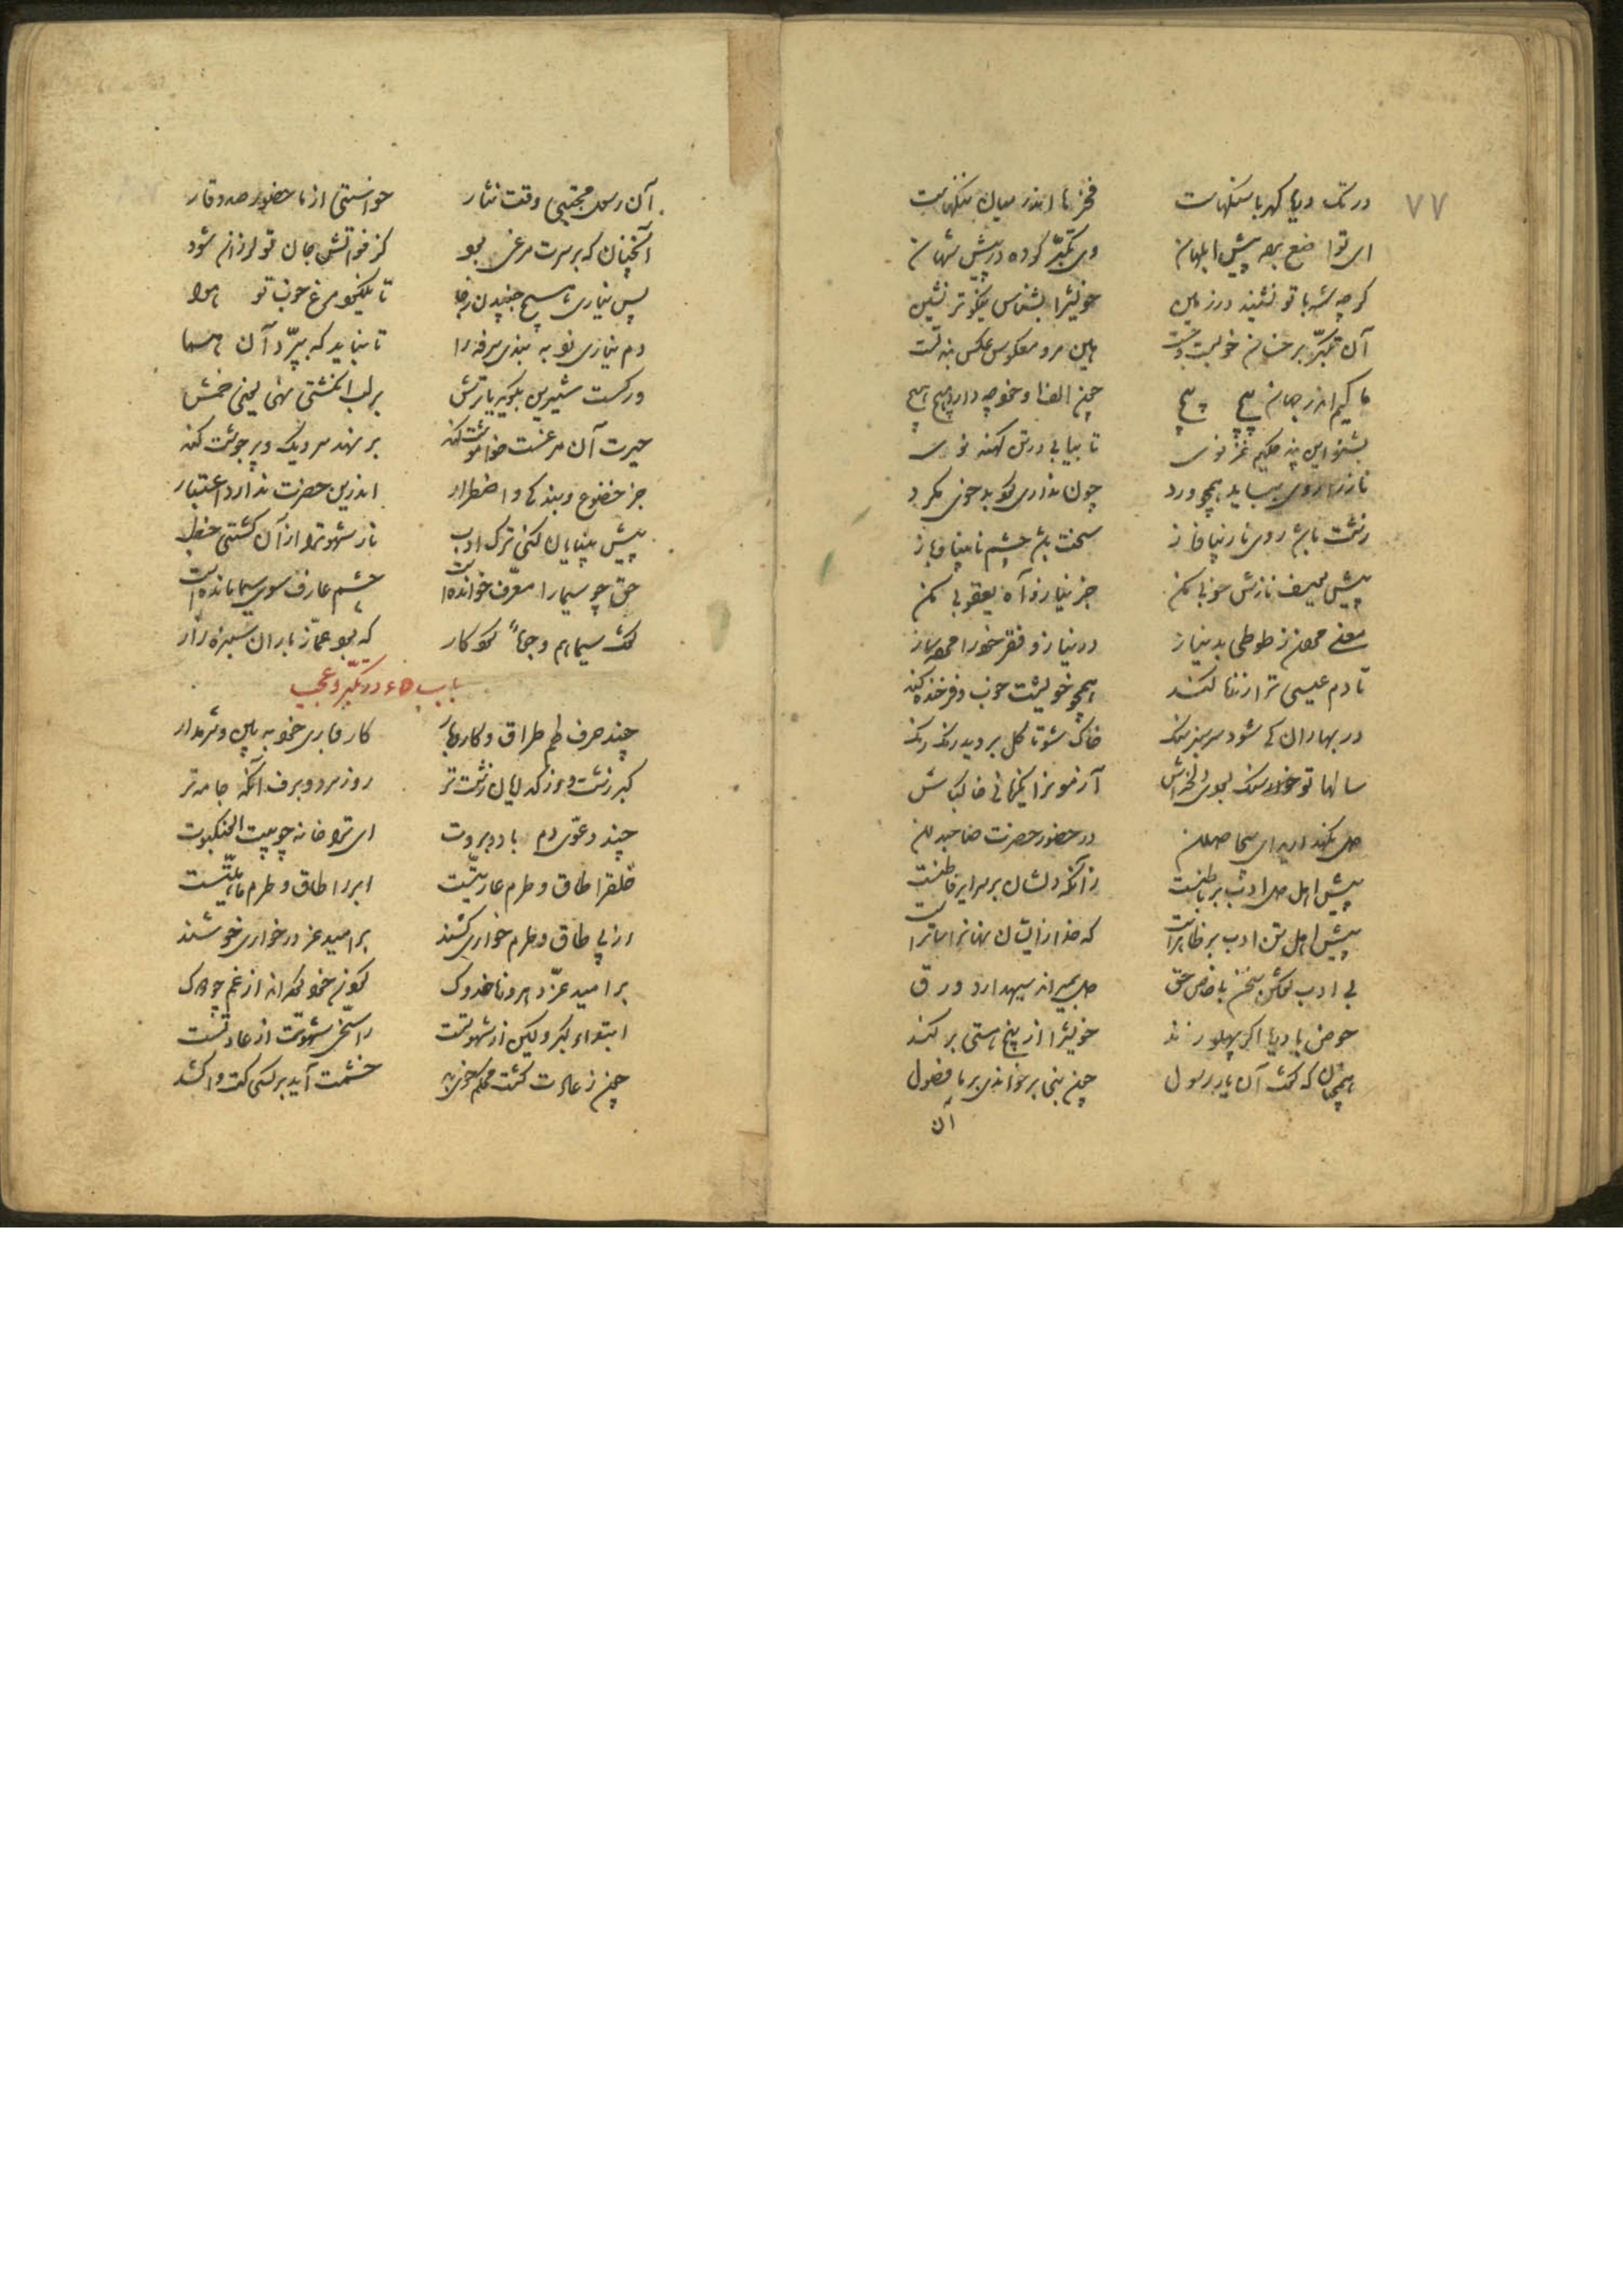 ۷۷
در تک دریا گهر با سنگهاست فخرها اندر میان ننگهاست
ای تواضع برده پیش ابلهان وی تکبر کرده در پیش شهان
گرچه شه با تو نشیند در زمین خویشرا بشناس نیکوتر نشین
آن تکبر بر خسان خوبست و چست هین مرو معکوس عکس بند تست
ما کییم اندر جهان پیچ پیچ چون الف او خود چه دارد هیچ هیچ
بشنو این پند حکیم غزنوی تا بیابی در تن کهنه نوی
ناز را رویی بباید همچو ورد چون نداری گرد بدخویی مگرد
زشت باشد روی نازیبا و ناز سخت باشد چشم نابینا و باز
پیش یوسف نازش خوبی مکن جز نیاز و آه یعقوبی مکن
معنی مردن ز طوطی بد نیاز در نیاز و فقر خود را مرده ساز
تا دم عیسی ترا زنده کند همچو خویشت خوب و فرخنده کند
در بهاران کی شود سرسبز سنگ خاک شو تا گل بروید رنگ رنگ
سالها تو سنگ بودی دلخراش آزمون را یکزمانی خاک باش
دل نگهدارید ای بیحاصلان در حضور حضرت صاحبدلان
پیش اهل دل ادب بر باطنست زانکه دلشان بر سرایر فاطنست
پیش اهل تن ادب بر ظاهرست که خدا زایشان نهانرا ساترست
بی ادب گفتن سخن با خاص حق دل بمیراند سیه دارد ورق
حوض با دریا اگر پهلو زند خویشرا از بیخ هستی بر کند
همچنان که گفت آن یار رسول چون نبی بر خواندی بر ما فصول
آن
آن رسول مجتبی وقت نثار خواستی از ما حضور صد وقار
آنچنان که بر سرت مرغی بود کز فواتش جان تو لرزان شود
پس نیاری هیچ جنبیدن ز جا تا نگیرد مرغ خوب تو هوا
دم نیاری زد ببندی سرفه را تا نباید که بپرد آن هما
ور کست شیرین بگوید یا ترش بر لب انگشتی نهی یعنی خمش
حیرت آن مرغست خاموشت کند بر نهد سر دیگ و پر جوشت کند
جز خضوع و بندگی و اضطرار اندرین حضرت ندارد اعتبار
پیش بینایان کنی ترک ادب نار شهوترا از آن گشتی حطب
حق چو سیما را معرف خوانده است چشم عارف سوی سیما مانده است
گفت سیماهم وجوه کردگار که بود غماز باران سبزه زار
باب ۶۵ در تکبر و عجب
چند حرف طمطراق و کار و بار کار و باری خود ببین و شرم دار
کبر زشت و از گدایان زشت تر روز سرد و برف آنگه جامه تر
چند دعوی دم و باد و بروت ای ترا خانه چو بیت العنکبوت
خلقرا طاق و طرم عاریتیست امر را طاق و طرم ماهیتیست
از پی طاق و طرم خواری کشند بر امید عز در خواری خوشند
بر امید عز ده روزه خدوک گردن خود کرده اند از غم چو دوک
ابتداء کبر و کین از شهوتست راسخی شهوتت از عادتست
چون ز عادت گشت محکم خوی بد خشمت آید بر کسی کت واکشد